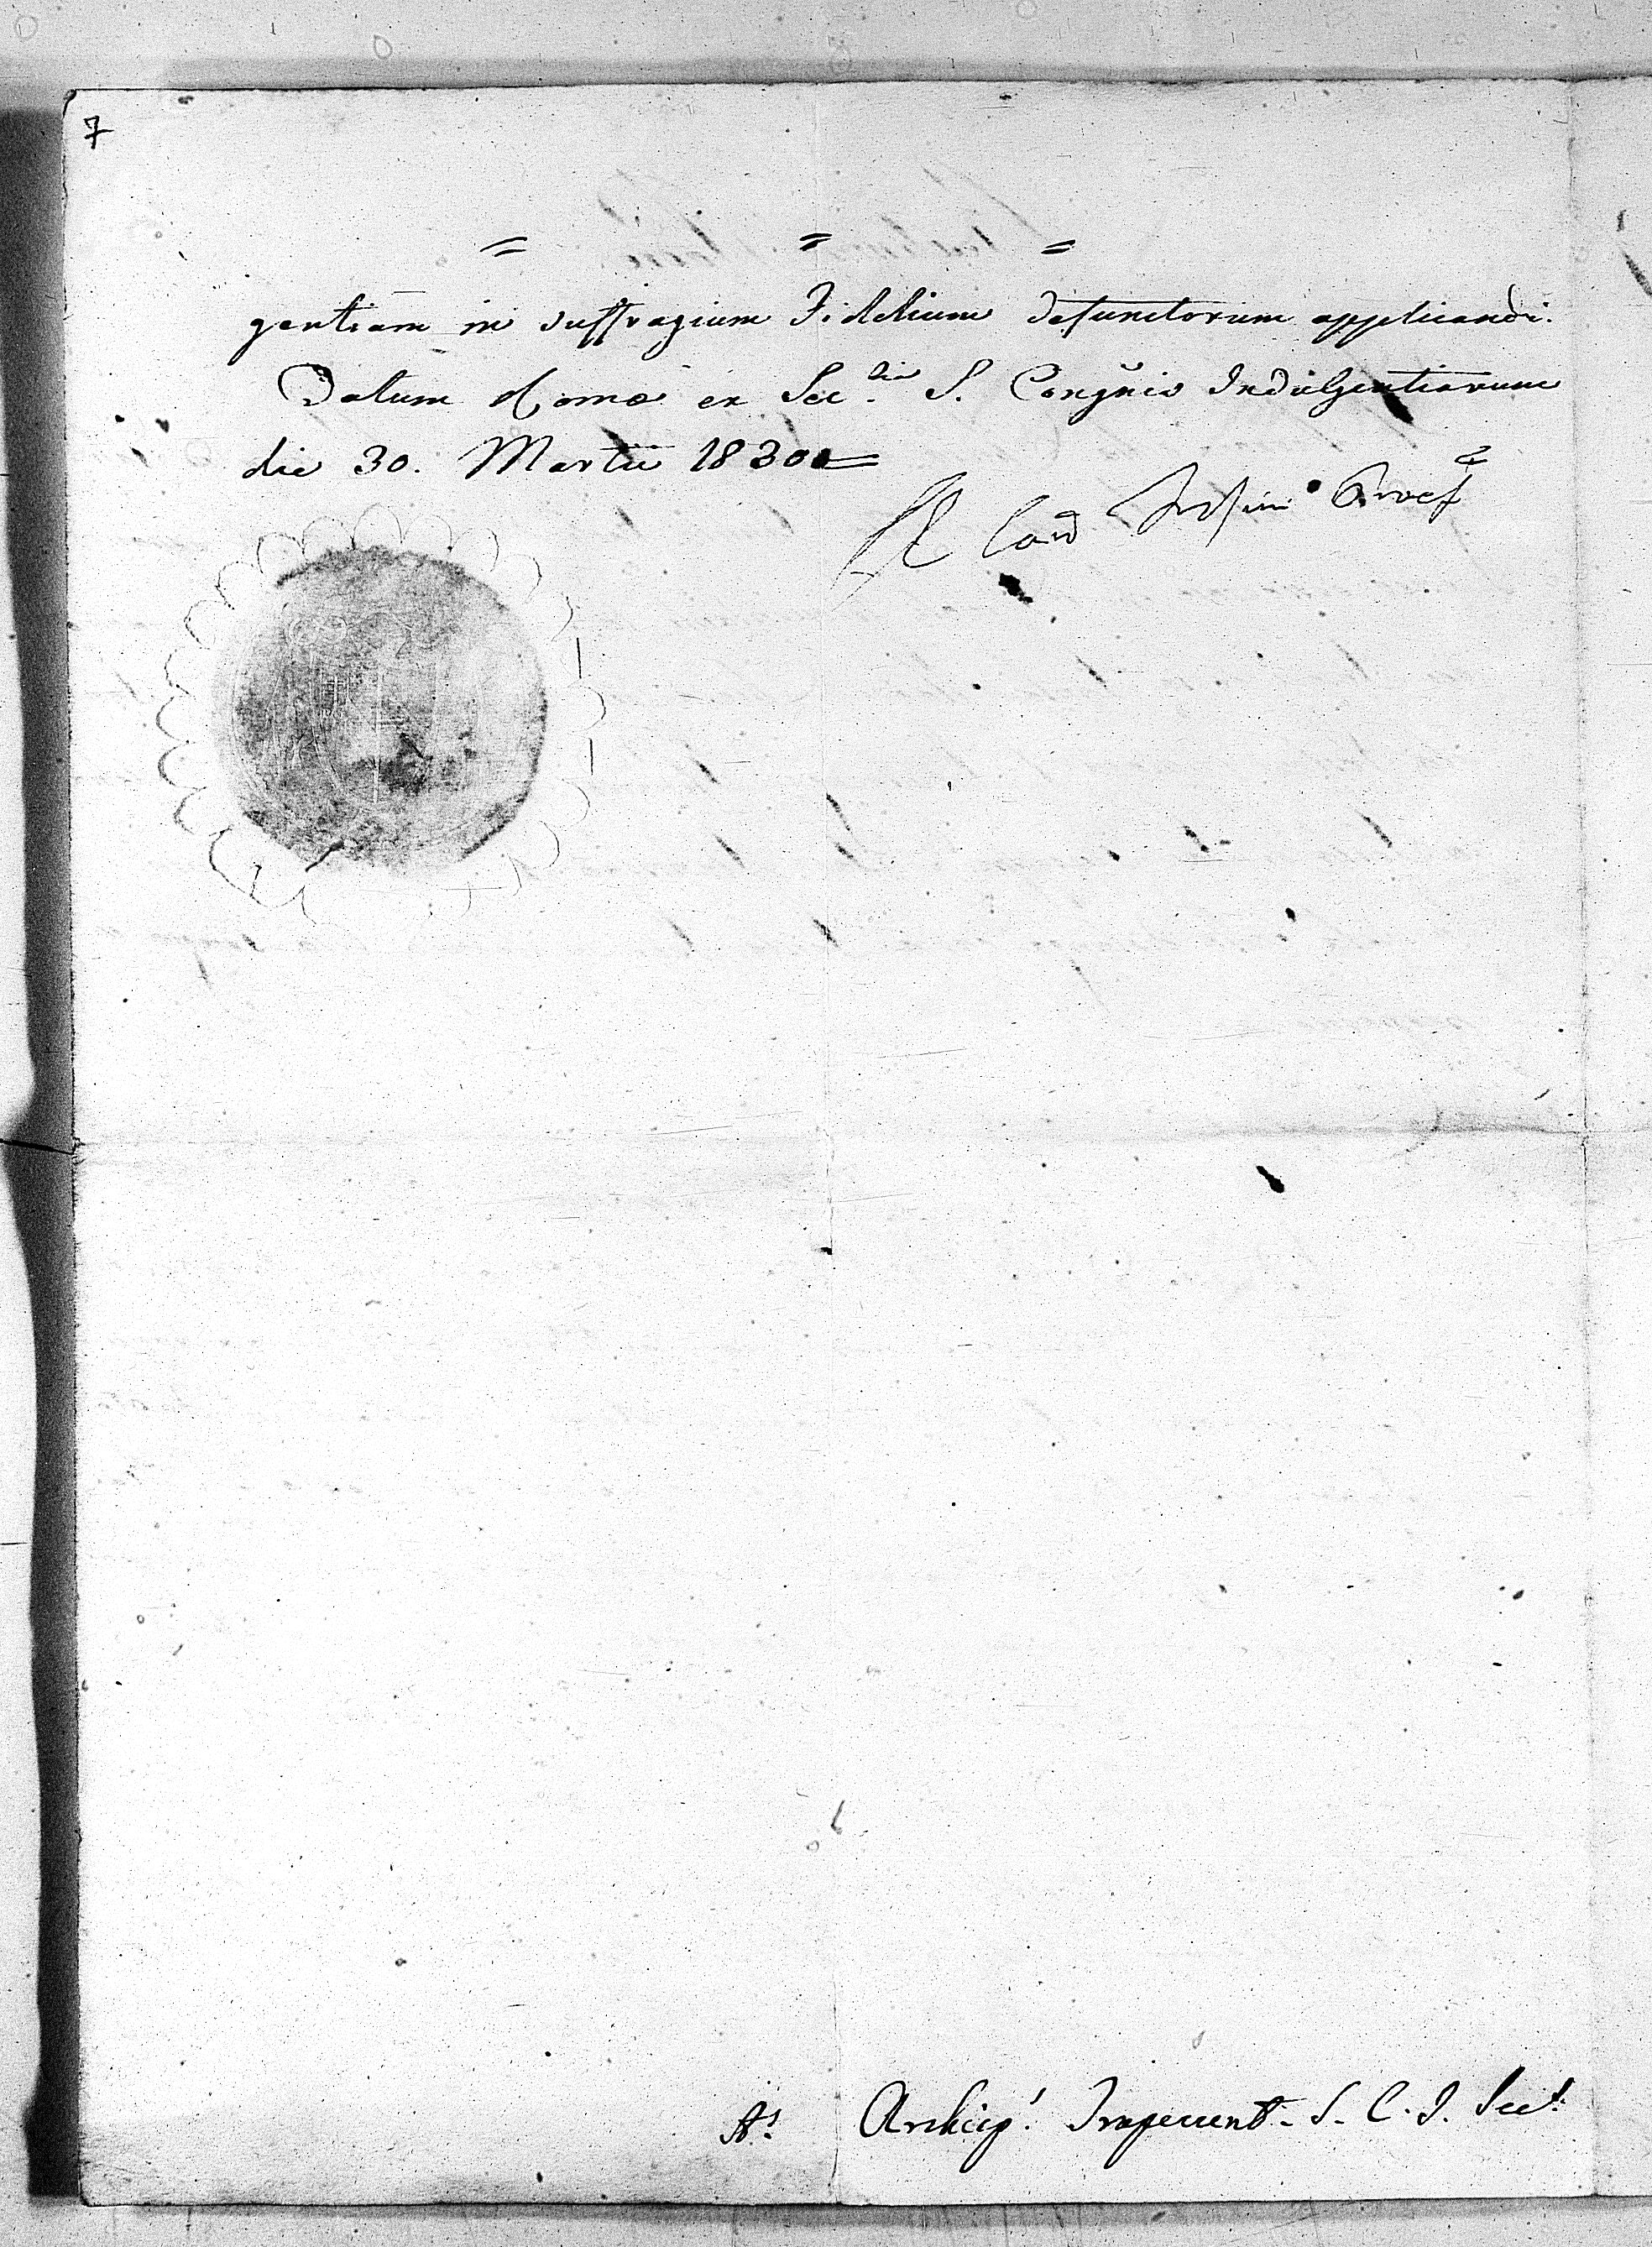 7
= = =
gentiam in suffragium Fidelium defunctorum applicandi.
Datum Romæ ex Sec.ria S. Congñis Indulgentiarum
die 30. Martii 1830 =
Card Præf
A.s Archiep.s Trapezunt. S. C. I. Sec.s